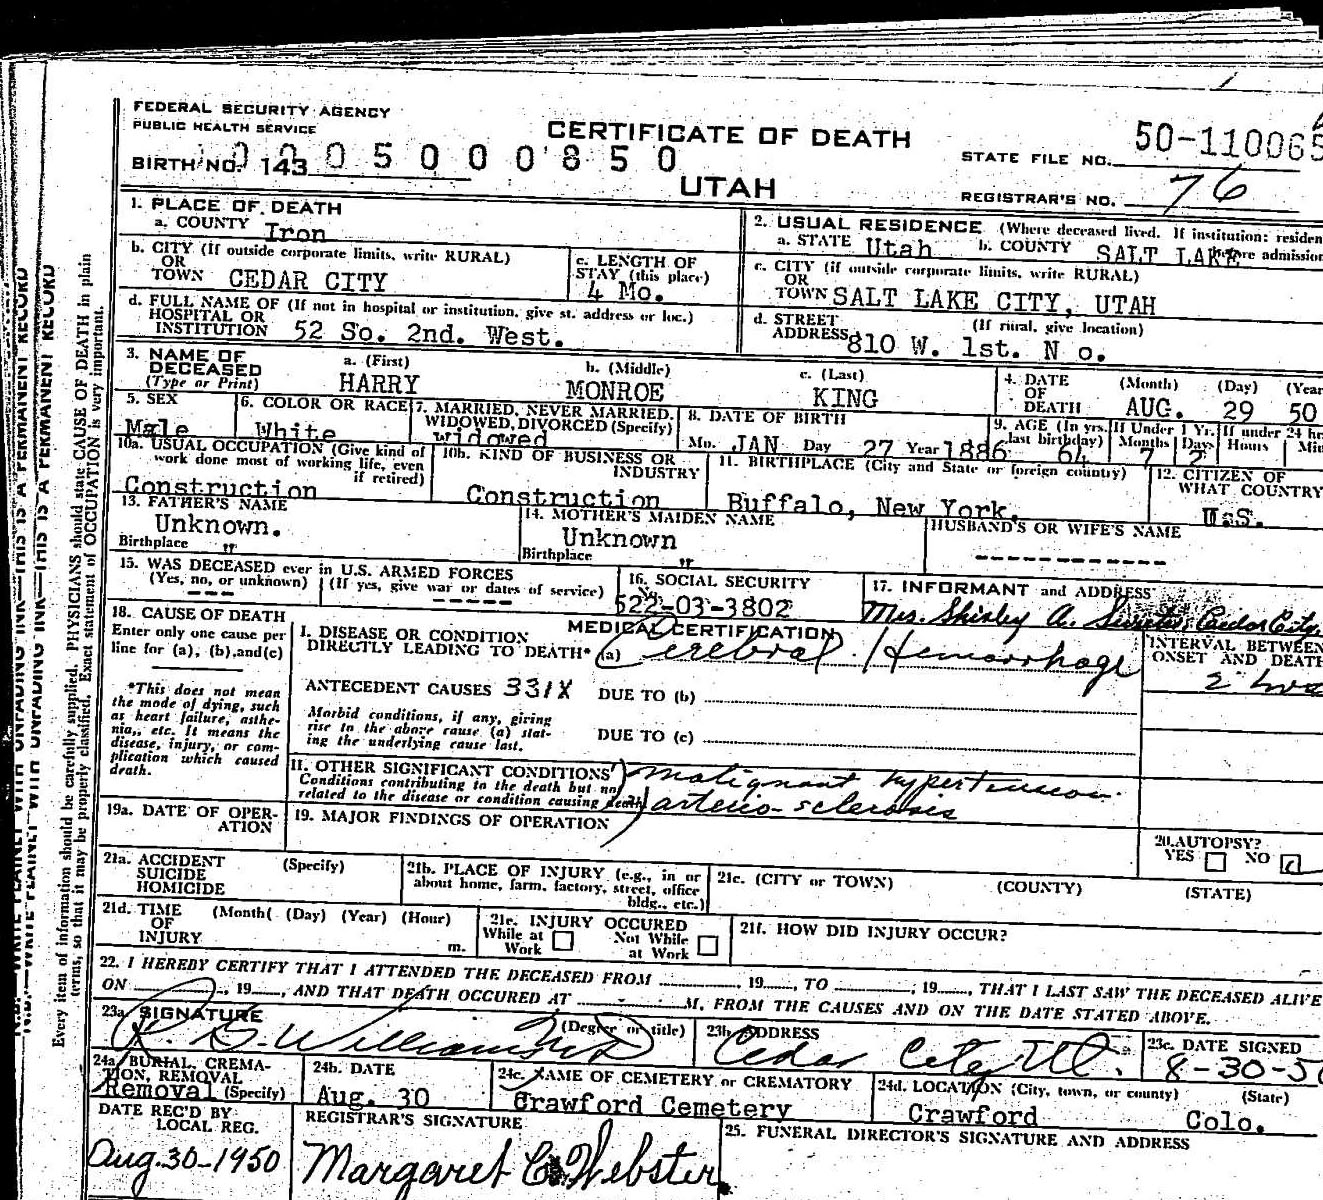 FEDERAL SECURITY AGENCY
PUBLIC HEALTH SERVICE
CERTIFICATE OF DEATH
50-110065
BIRTH NO. 143
0005000850
UTAH
STATE FILE NO.
REGISTRAR'S NO. 76
1. PLACE OF DEATH
a. COUNTY Iron
2. USUAL RESIDENCE (Where deceased lived. If institution: residen
a. STATE Utah b. COUNTY SALT LAKE before admission
b. CITY (If outside corporate limits, write RURAL)
OR
TOWN CEDAR CITY
c. LENGTH OF
STAY (this place)
4 Mo.
c. CITY (if outside corporate limits, write RURAL)
OR
TOWN SALT LAKE CITY, UTAH
d. FULL NAME OF (If not in hospital or institution, give st. address or loc.)
HOSPITAL OR
INSTITUTION 52 So. 2nd. West.
d. STREET (If rural, give location)
ADDRESS 810 W. 1st. N o.
3. NAME OF
DECEASED
(Type or Print)
a. (First)
HARRY
b. (Middle)
MONROE
c. (Last)
KING
4. DATE
OF
DEATH
(Month) (Day) (Year
AUG. 29 50
5. SEX
Male
6. COLOR OR RACE
White
7. MARRIED, NEVER MARRIED,
WIDOWED, DIVORCED (Specify)
Widowed
8. DATE OF BIRTH
Mo. JAN Day 27 Year 1886
9. AGE (In yrs.
last birthday)
64
If Under 1 Yr.
Months Days
7 2
If under 24 hr
Hours Mi
10a. USUAL OCCUPATION (Give kind of
work done most of working life, even
if retired)
Construction
10b. KIND OF BUSINESS OR
INDUSTRY
Construction
11. BIRTHPLACE (City and State or foreign country)
Buffalo, New York.
12. CITIZEN OF
WHAT COUNTRY
U.S.
13. FATHER'S NAME
Unknown.
Birthplace "
14. MOTHER'S MAIDEN NAME
Unknown
Birthplace "
HUSBAND'S OR WIFE'S NAME
-------------
15. WAS DECEASED ever in U.S. ARMED FORCES
(Yes, no, or unknown) (If yes, give war or dates of service)
--- -----
16. SOCIAL SECURITY
No.
522-03-3802
17. INFORMANT and ADDRESS
Mrs. Shirley A. Cedar City,
18. CAUSE OF DEATH
Enter only one cause per
line for (a), (b),and(c)
MEDICAL CERTIFICATION
I. DISEASE OR CONDITION
DIRECTLY LEADING TO DEATH* (a) Cerebral Hemorrhage
INTERVAL BETWEEN
ONSET AND DEATH
2
*This does not mean
the mode of dying, such
as heart failure, asthe-
nia,, etc. It means the
disease, injury, or com-
plication which caused
death.
ANTECEDENT CAUSES 331X DUE TO (b)
Morbid conditions, if any, giving
rise to the above cause (a) stat-
ing the underlying cause last.
DUE TO (c)
II. OTHER SIGNIFICANT CONDITIONS
Conditions contributing to the death but not
related to the disease or condition causing death
malignant hypertension
arterio-sclerosis
19a. DATE OF OPER-
ATION
19. MAJOR FINDINGS OF OPERATION
20. AUTOPSY?
YES NO
21a. ACCIDENT (Specify)
SUICIDE
HOMICIDE
21b. PLACE OF INJURY (e.g., in or
about home, farm, factory, street, office
bldg., etc.)
21c. (CITY or TOWN) (COUNTY) (STATE)
21d. TIME (Month( (Day) (Year) (Hour)
OF
INJURY m.
21e. INJURY OCCURED
While at Not While
Work at Work
21f. HOW DID INJURY OCCUR?
22. I HEREBY CERTIFY THAT I ATTENDED THE DECEASED FROM , 19 , TO , 19 , THAT I LAST SAW THE DECEASED ALIVE
ON , 19 , AND THAT DEATH OCCURED AT M, FROM THE CAUSES AND ON THE DATE STATED ABOVE.
23a. SIGNATURE (Degree or title)
R. G. Williams MD
23b. ADDRESS
Cedar City Ut.
23c. DATE SIGNED
8-30-50
24a. BURIAL, CREMA-
TION, REMOVAL
Removal (Specify)
24b. DATE
Aug. 30
24c. NAME OF CEMETERY or CREMATORY
Crawford Cemetery
24d. LOCATION (City, town, or county) (State)
Crawford Colo.
DATE REC'D BY
LOCAL REG.
Aug. 30-1950
REGISTRAR'S SIGNATURE
Margaret C. Webster
25. FUNERAL DIRECTOR'S SIGNATURE AND ADDRESS
N.B.—WRITE PLAINLY WITH UNFADING INK—THIS IS A PERMANENT RECORD
Every item of information should be carefully supplied. PHYSICIANS should state CAUSE OF DEATH in plain
terms, so that it may be properly classified. Exact statement of OCCUPATION is very important.